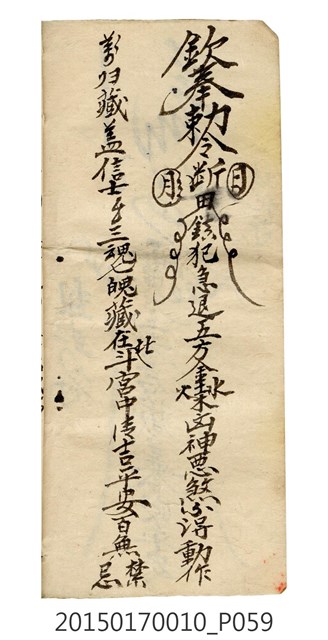 欽奉勅令斷田鉄犯急退五方金木水火凶神悪煞不淂動作
日
月
万归藏盖信士 三魂七魄藏在北斗宮中清吉平安百無禁忌
20150170010_P059